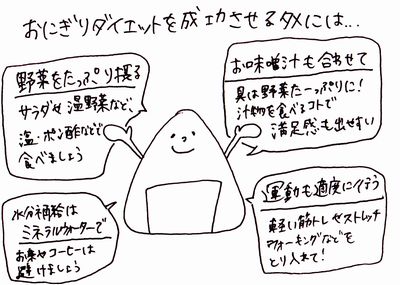 おにぎりダイエットを成功させるタメには...
野菜をたっぷり摂る
サラダや温野菜など、
塩・ポン酢などで
食べましょう
お味噌汁も合わせて
具は野菜たーっぷりに!
汁物を食べるコトで
満足感も出せすい
水分補給は
ミネラルウォーターで
お茶やコーヒーは
避けましょう
運動も適度に行う
軽い筋トレやストレッチ
ウォーキングなどを
とり入れて!